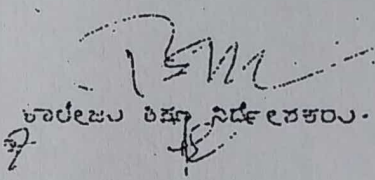 ಕಾಲೇಜು ಶಿಕ್ಷಣ ನಿರ್ದೇಶಕರು.